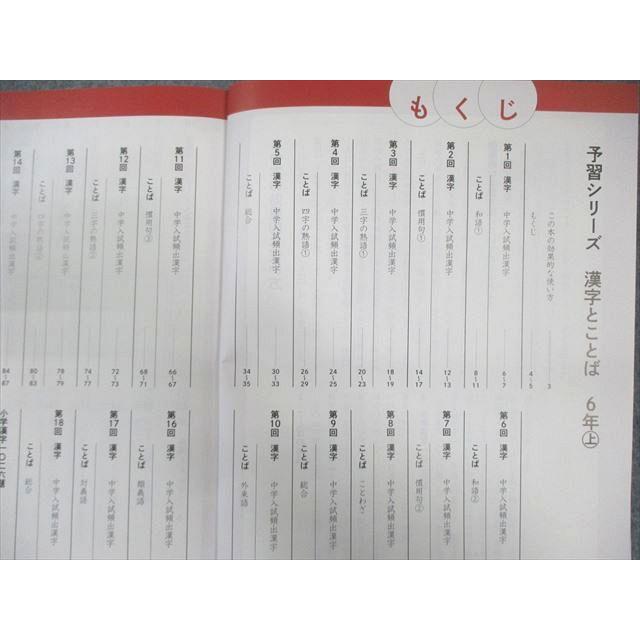 もくじ
予習シリーズ 漢字とことば 6年上
この本の効果的な使い方 3
もくじ 4〜5
第1回 漢字 中学入試頻出漢字 6〜7
ことば 和語① 8〜11
第2回 漢字 中学入試頻出漢字 12〜13
ことば 慣用句① 14〜17
第3回 漢字 中学入試頻出漢字 18〜19
ことば 三字の熟語① 20〜23
第4回 漢字 中学入試頻出漢字 24〜25
ことば 四字の熟語① 26〜29
第5回 漢字 中学入試頻出漢字 30〜33
ことば 総合 34〜35
第6回 漢字 中学入試頻出漢字
ことば 和語②
第7回 漢字 中学入試頻出漢字
ことば 慣用句②
第8回 漢字 中学入試頻出漢字
ことば ことわざ
第9回 漢字 中学入試頻出漢字
ことば 総合
第10回 漢字 中学入試頻出漢字
ことば 外来語
第11回 漢字 中学入試頻出漢字 66〜67
ことば 慣用句③ 68〜71
第12回 漢字 中学入試頻出漢字 72〜73
ことば 三字の熟語② 74〜77
第13回 漢字 中学入試頻出漢字 78〜79
ことば 四字の熟語② 80〜83
第14回 漢字 中学入試頻出漢字 84〜87
第16回 漢字 中学入試頻出漢字
ことば 類義語
第17回 漢字 中学入試頻出漢字
ことば 対義語
第18回 漢字 中学入試頻出漢字
ことば 総合
小学漢字一〇二六